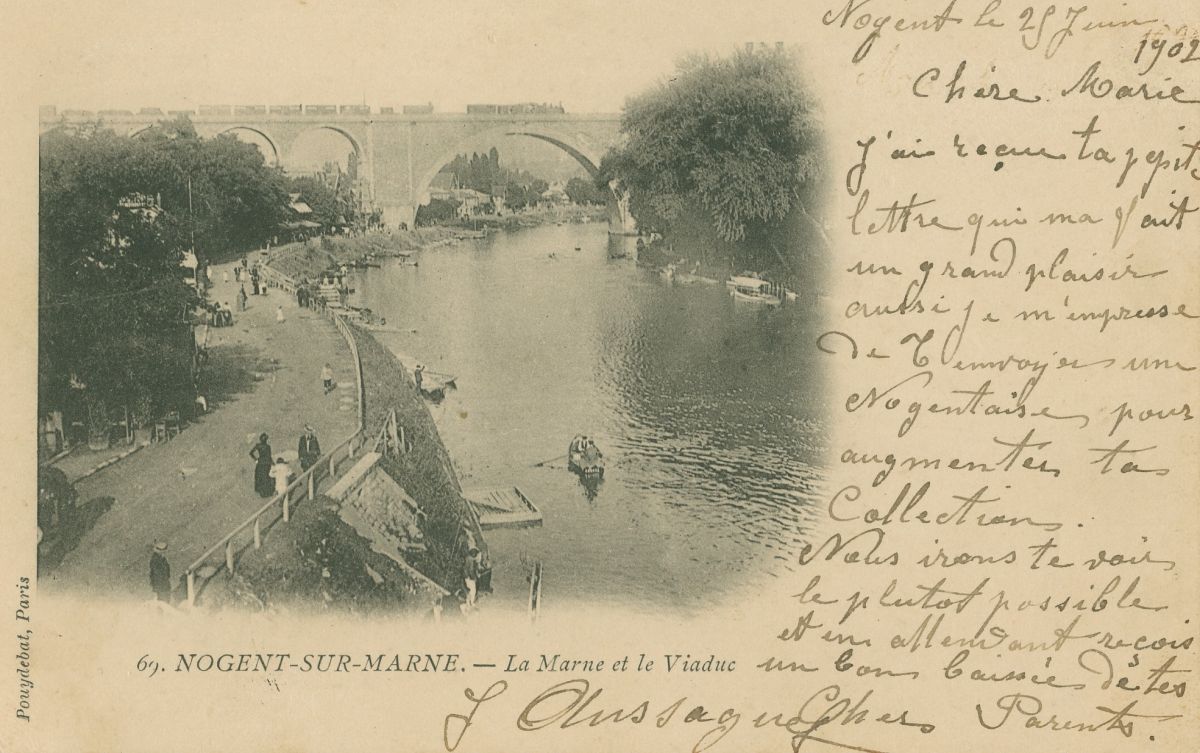 Nogent le 25 Juin
1902
Chère Marie
J'ai reçue ta petite
lettre qui ma fait
un grand plaisir
aussi je m'empresse
de T'envoyer une
Nogentaise pour
augmenter ta
Collection.
Nous irons te voir
le plutot possible
et en attendant recois
un bon baisée de tes
chers Parents.
J
69. NOGENT-SUR-MARNE. — La Marne et le Viaduc
Pouydebat, Paris